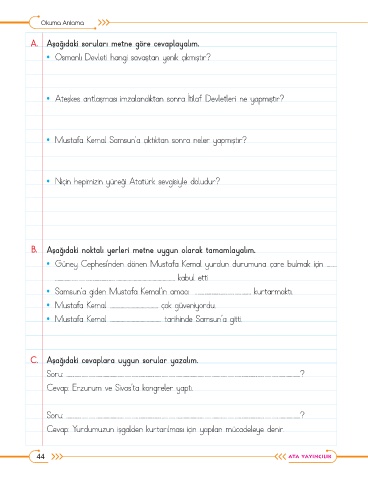 Okuma Anlama
A. Aşağıdaki soruları metne göre cevaplayalım.
• Osmanlı Devleti hangi savaştan yenik çıkmıştır?
• Ateşkes antlaşması imzalandıktan sonra İtilaf Devletleri ne yapmıştır?
• Mustafa Kemal Samsun'a çıktıktan sonra neler yapmıştır?
• Niçin hepimizin yüreği Atatürk sevgisiyle doludur?
B. Aşağıdaki noktalı yerleri metne uygun olarak tamamlayalım.
• Güney Cephesi'nden dönen Mustafa Kemal yurdun durumuna çare bulmak için ......
............................................................ kabul etti.
• Samsun'a giden Mustafa Kemal'in amacı ............................ kurtarmaktı.
• Mustafa Kemal ........................ çok güveniyordu.
• Mustafa Kemal ......................... tarihinde Samsun'a gitti.
C. Aşağıdaki cevaplara uygun sorular yazalım.
Soru: ....................................................................................................?
Cevap: Erzurum ve Sivas'ta kongreler yaptı.
Soru: ....................................................................................................?
Cevap: Yurdumuzun işgalden kurtarılması için yapılan mücadeleye denir.
44
ATA YAYINCILIK